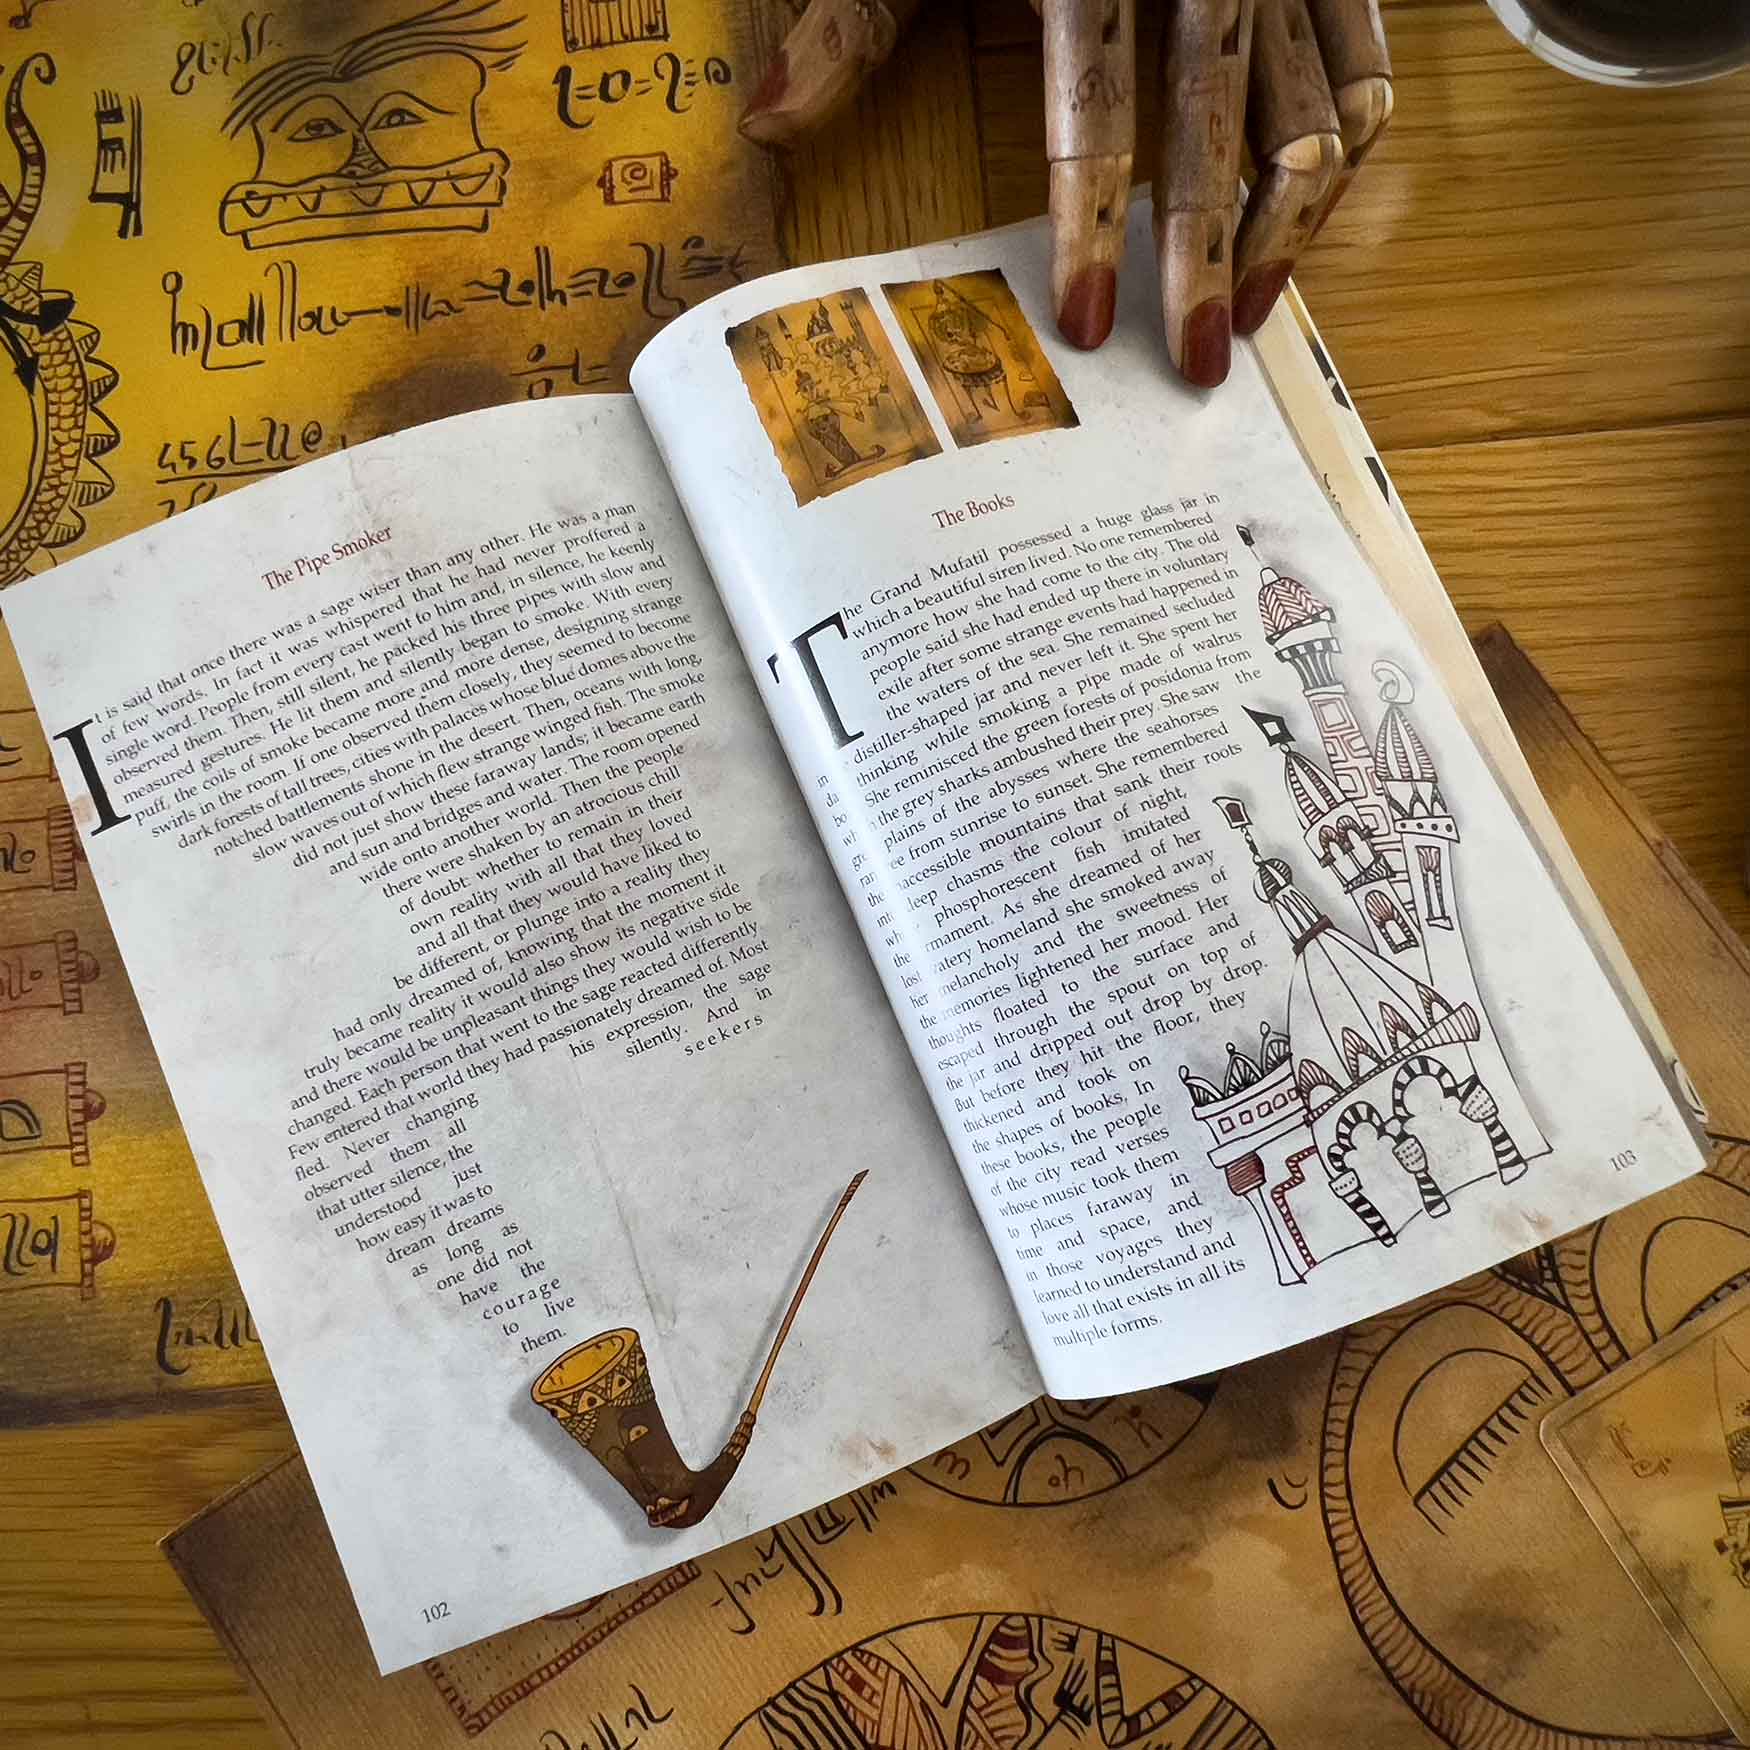 The Pipe Smoker
It is said that once there was a sage wiser than any other. He was a man
of few words. In fact it was whispered that he had never proffered a
single word. People from every cast went to him and, in silence, he keenly
observed them. Then, still silent, he packed his three pipes with slow and
measured gestures. He lit them and silently began to smoke. With every
puff, the coils of smoke became more and more dense, designing strange
swirls in the room. If one observed them closely, they seemed to become
dark forests of tall trees, cities with palaces whose blue domes above the
notched battlements shone in the desert. Then, oceans with long,
slow waves out of which flew strange winged fish. The smoke
did not just show these faraway lands; it became earth
and sun and bridges and water. The room opened
wide onto another world. Then the people
there were shaken by an atrocious chill
of doubt: whether to remain in their
own reality with all that they loved
and all that they would have liked to
be different, or plunge into a reality they
had only dreamed of, knowing that the moment it
truly became reality it would also show its negative side
and there would be unpleasant things they would wish to be
changed. Each person that went to the sage reacted differently
Few entered that world they had passionately dreamed of. Most
fled. Never changing his expression, the sage
observed them all silently. And in
that utter silence, the seekers
understood just
how easy it was to
dream dreams
as long as
one did not
have the
courage
to live
them.
102
The Books
The Grand Mufatil possessed a huge glass jar in
which a beautiful siren lived. No one remembered
anymore how she had come to the city. The old
people said she had ended up there in voluntary
exile after some strange events had happened in
the waters of the sea. She remained secluded
in distiller-shaped jar and never left it. She spent her
thinking while smoking a pipe made of walrus
She reminisced the green forests of posidonia from
the grey sharks ambushed their prey. She saw the
plains of the abysses where the seahorses
from sunrise to sunset. She remembered
inaccessible mountains that sank their roots
deep chasms the colour of night,
phosphorescent fish imitated
As she dreamed of her
watery homeland she smoked away
her melancholy and the sweetness of
the memories lightened her mood. Her
thoughts floated to the surface and
escaped through the spout on top of
the jar and dripped out drop by drop.
But before they hit the floor, they
thickened and took on
the shapes of books. In
these books, the people
of the city read verses
whose music took them
to places faraway in
time and space, and
in those voyages they
learned to understand and
love all that exists in all its
multiple forms.
103